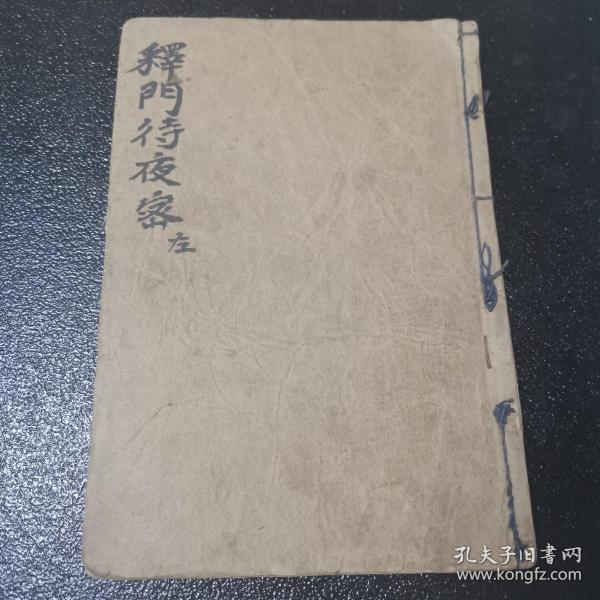 釋門待夜密
左
孔夫子旧書网
www.kongfz.com